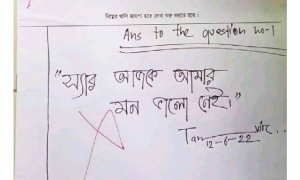 নিচের খালি জায়গা হতে লেখা শুরু করতে হবে।
Ans to the question no-1
"স্যার আজকে আমার
মন ভালো নেই।"
12-6-22